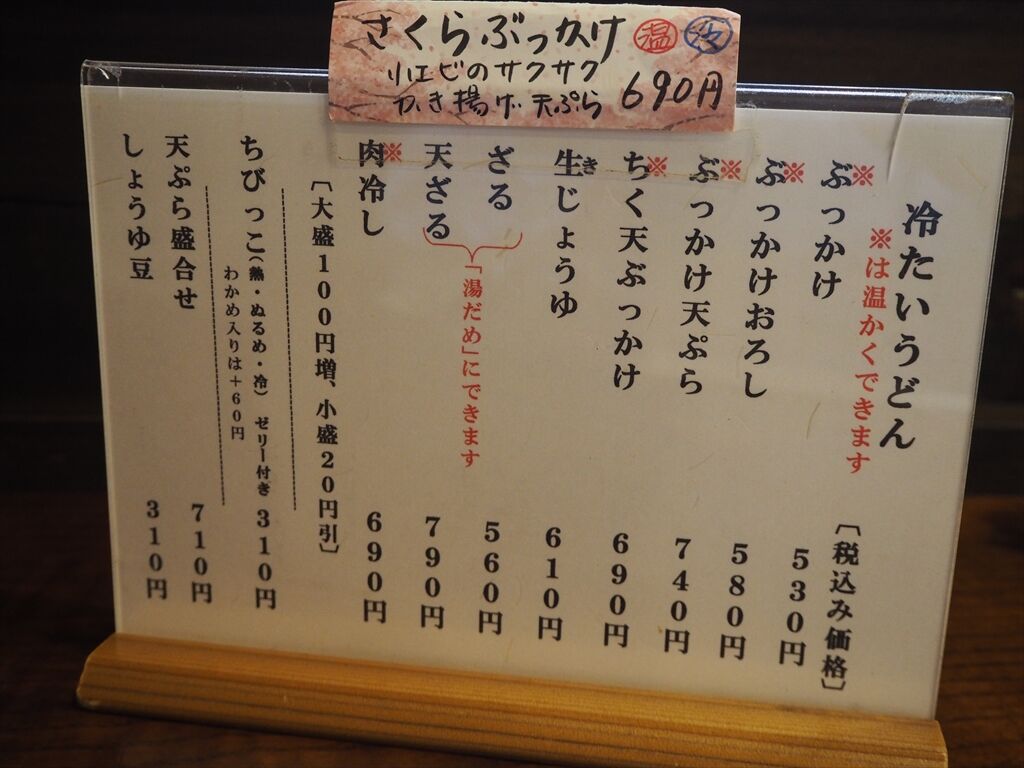 さくらぶっかけ 温 冷
小エビのサクサク
かき揚げ天ぷら 690円
冷たいうどん
※は温かくできます
〔税込み価格〕
※ぶっかけ 530円
※ぶっかけおろし 580円
※ぶっかけ天ぷら 740円
※ちく天ぶっかけ 690円
生じょうゆ 610円
き
ざる 560円
天ざる 790円
「湯だめ」にできます
※肉冷し 690円
〔大盛100円増、小盛20円引〕
ちびっこ(熱・ぬるめ・冷) ゼリー付き 310円
わかめ入りは+60円
天ぷら盛合せ 710円
しょうゆ豆 310円